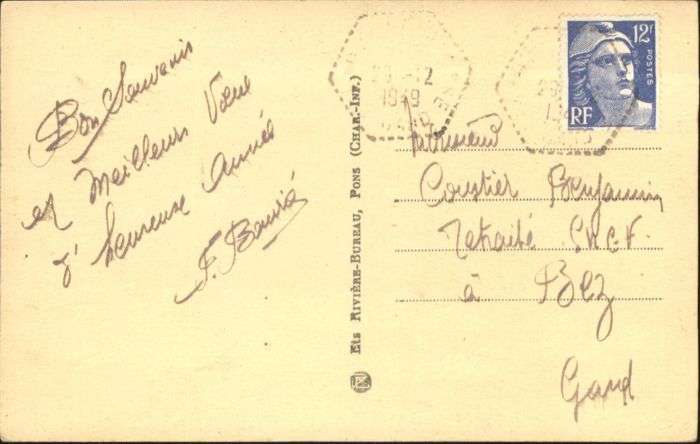 Bon Souvenir
et Meilleurs Vœux
d'heureuse Année
Ets RIVIÈRE-BUREAU, PONS (CHAR.-INF.)
12F
POSTES
RF
12
1949
Monsieur
Coustier Benjamin
Retraité S.N.C.F.
à Bez
Gard